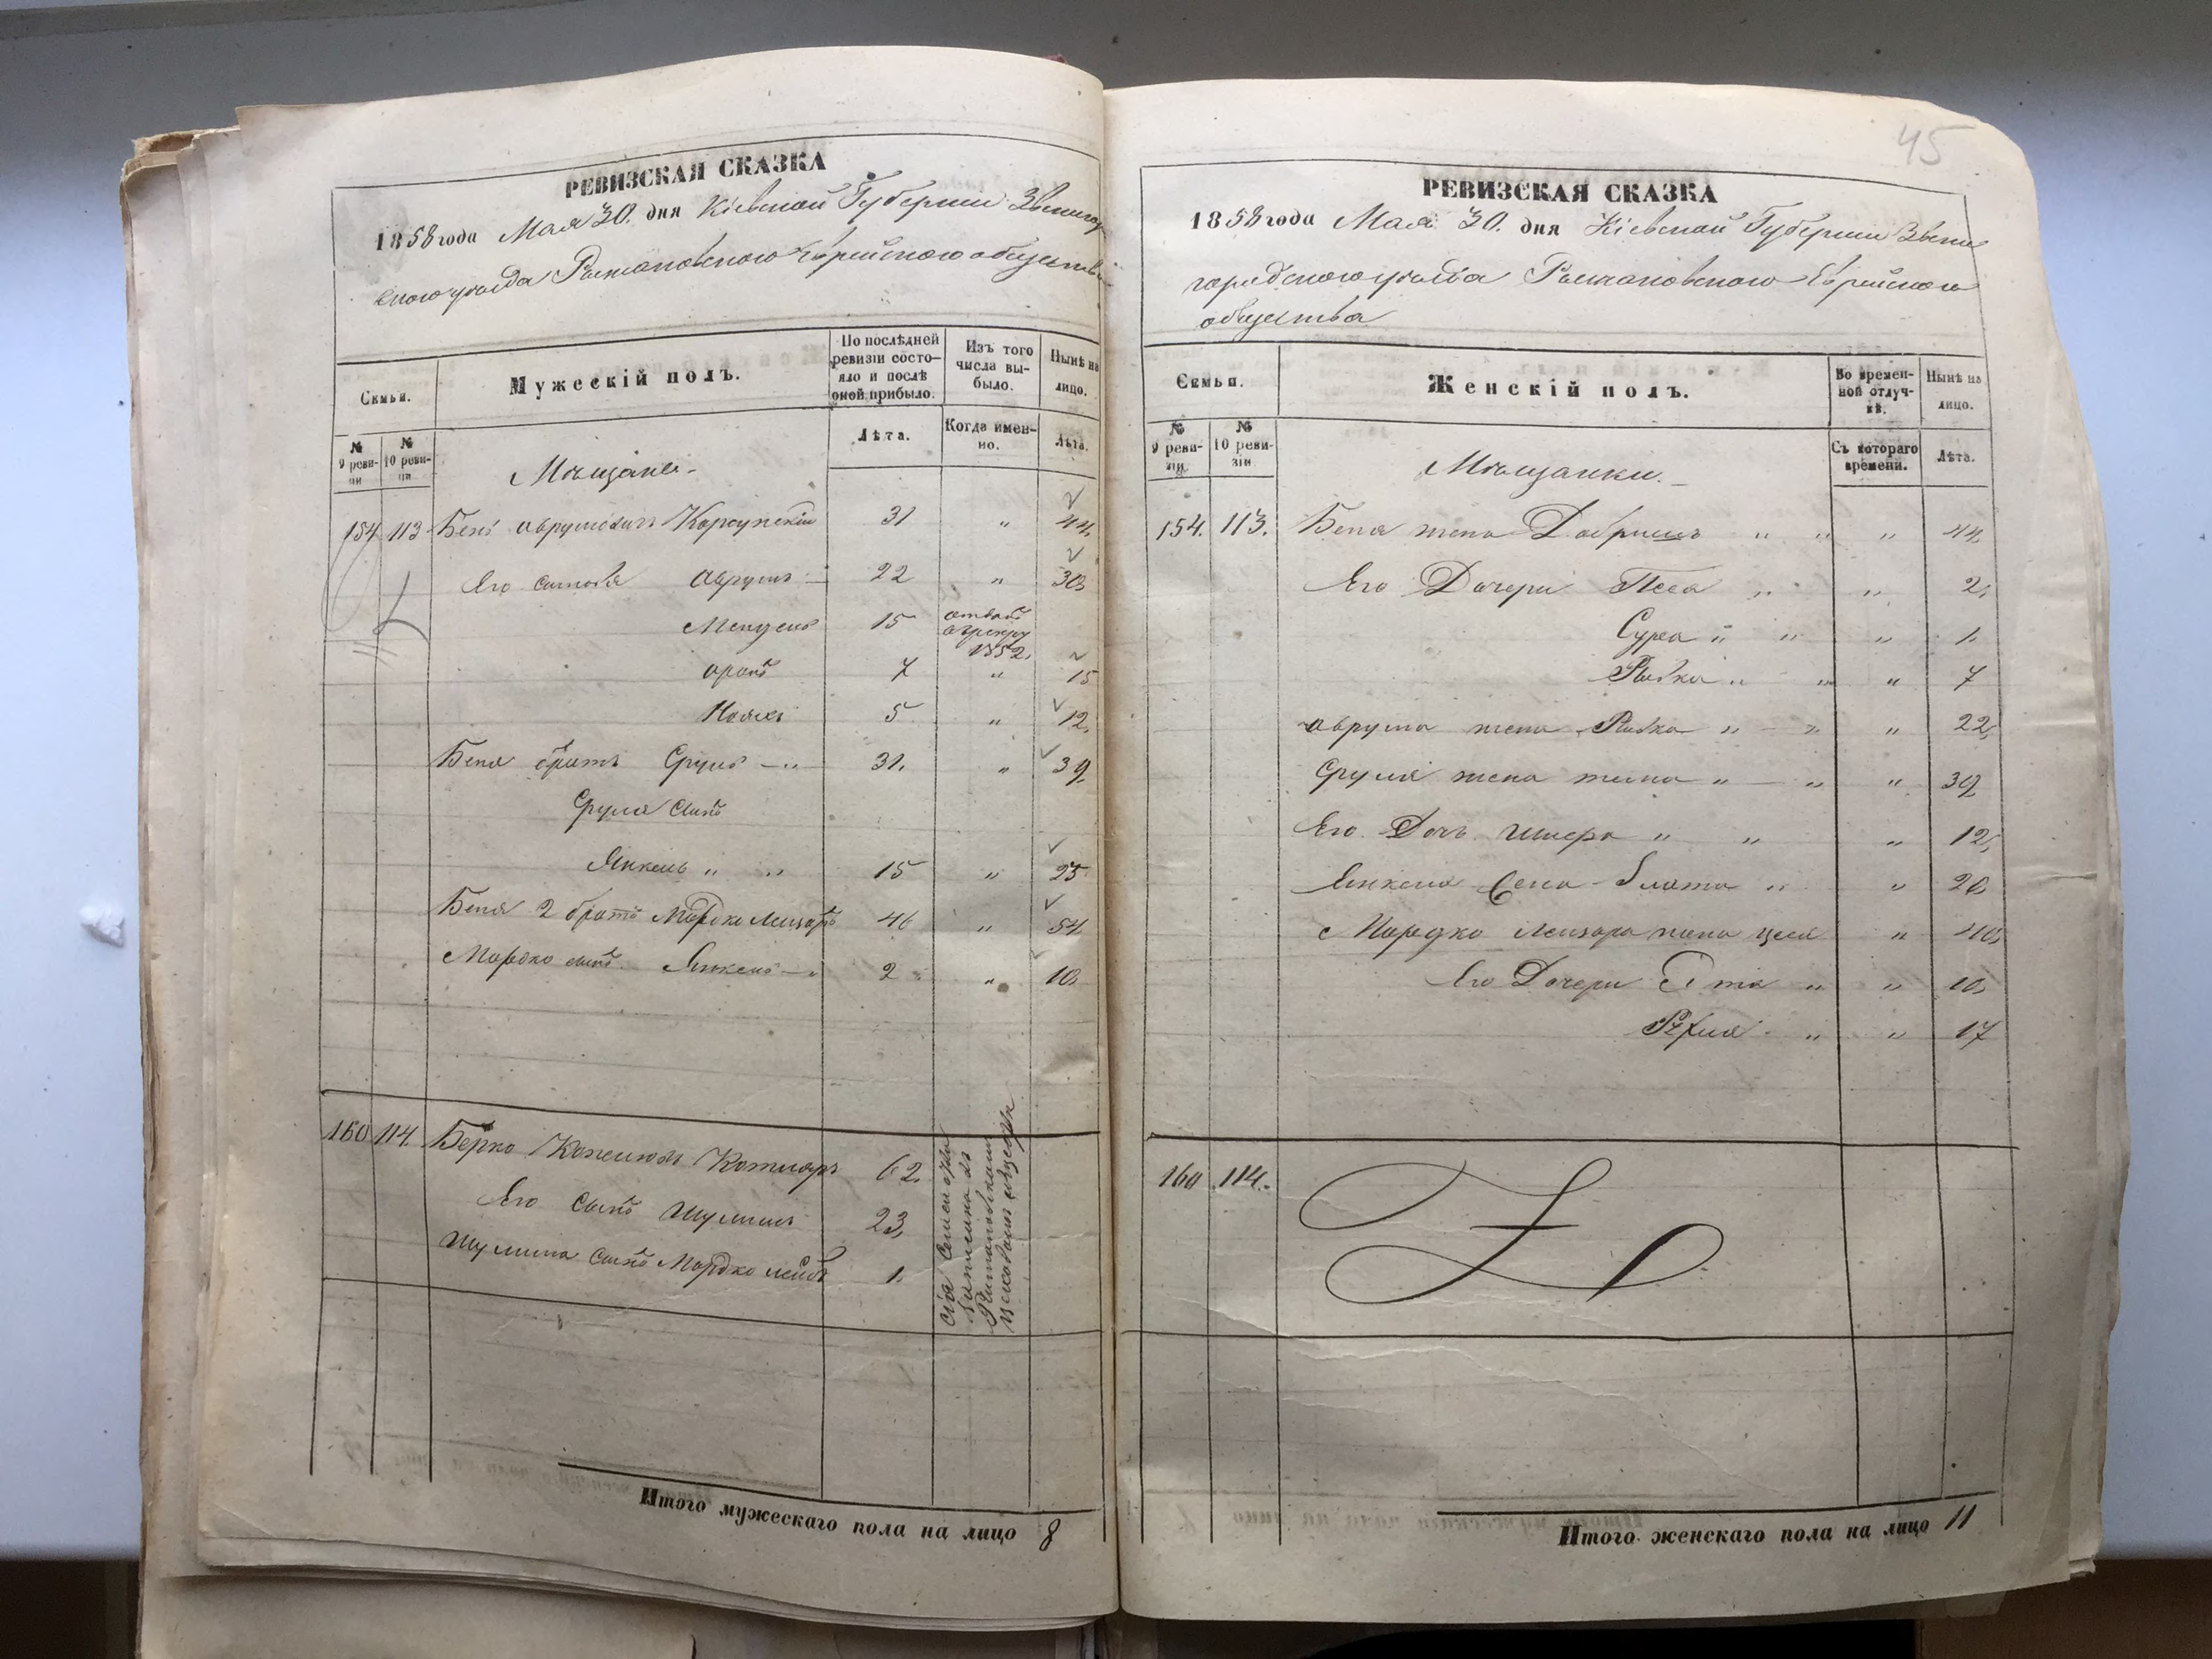 РЕВИЗСКАЯ СКАЗКА
1858 года Мая 30. дня Кіевской Губерніи Звениго
скаго уѣзда Еврейскаго обществ
Семьи.
Мужескій полъ.
По послѣдней ревизіи состо-
яло и послѣ
оной прибыло.
Изъ того
числа вы-
было.
Нынѣ на
лицо.
№
9 реви-
зіи
№
10 реви-
зіи
Лѣта.
Когда имен-
но.
Лѣта.
Мѣщане.
154 113 Беня Аврумовичъ Корсунскій 31 " 44.
Его сыновья Аврумъ 22 " 30.
Мендель 15
1852.
Аронъ 7 " 15
5 " 12.
Беня братъ Сруль " 31. " 39.
Сруля сынъ
Янкель " " 15 " 23
Беня 2 братъ Мордко Лейзоръ 46 " 54
Мордко сынъ Янкель " 2 " 10.
160 114. Берко Котляръ 62.
Его сынъ Шулимъ 23,
Шулима сынъ Мордко Лейбъ 1.
Сія
Итого мужескаго пола на лицо 8
45
РЕВИЗСКАЯ СКАЗКА
1858 года Мая 30. дня Кіевской Губерніи Звени
городскаго уѣзда Еврейскаго
общества
Семьи.
Женскій полъ.
Во времен-
ной отлуч-
кѣ.
Нынѣ на
лицо.
№
9 реви-
зіи.
№
10 реви-
зіи.
Съ котораго
времени.
Лѣта.
Мѣщанки.
154. 113. Беня жена Добришъ " " " 44.
Его Дочери Песя " " 2,
Сура " " " 1.
Ривка " " " 7
Аврума жена Ривка " " " 22,
Сруля жена " " " 39
Его Дочь " " " 12,
Янкеля жена Злата " " 20
Мордко Лейзора жена Цеся " 40,
Его Дочери " " 10,
" " 17
160 114.
Итого женскаго пола на лицо 11